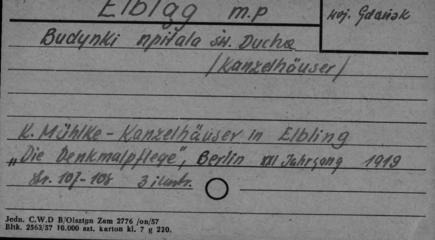 Elbląg m.p
woj. Gdańsk
Budynki szpitala św. Ducha
/Kanzelhäuser/
K. Mühlke - Kanzelhäuser in Elbling
„Die Denkmalpflege", Berlin XXI Jahrgang 1919
str. 107-108 3 ilustr.
Jedn. C.W.D B/Olsztyn Zam 2776 /on/57
Bltk. 2563/57 10.000 szt. karton kl. 7 g 220.